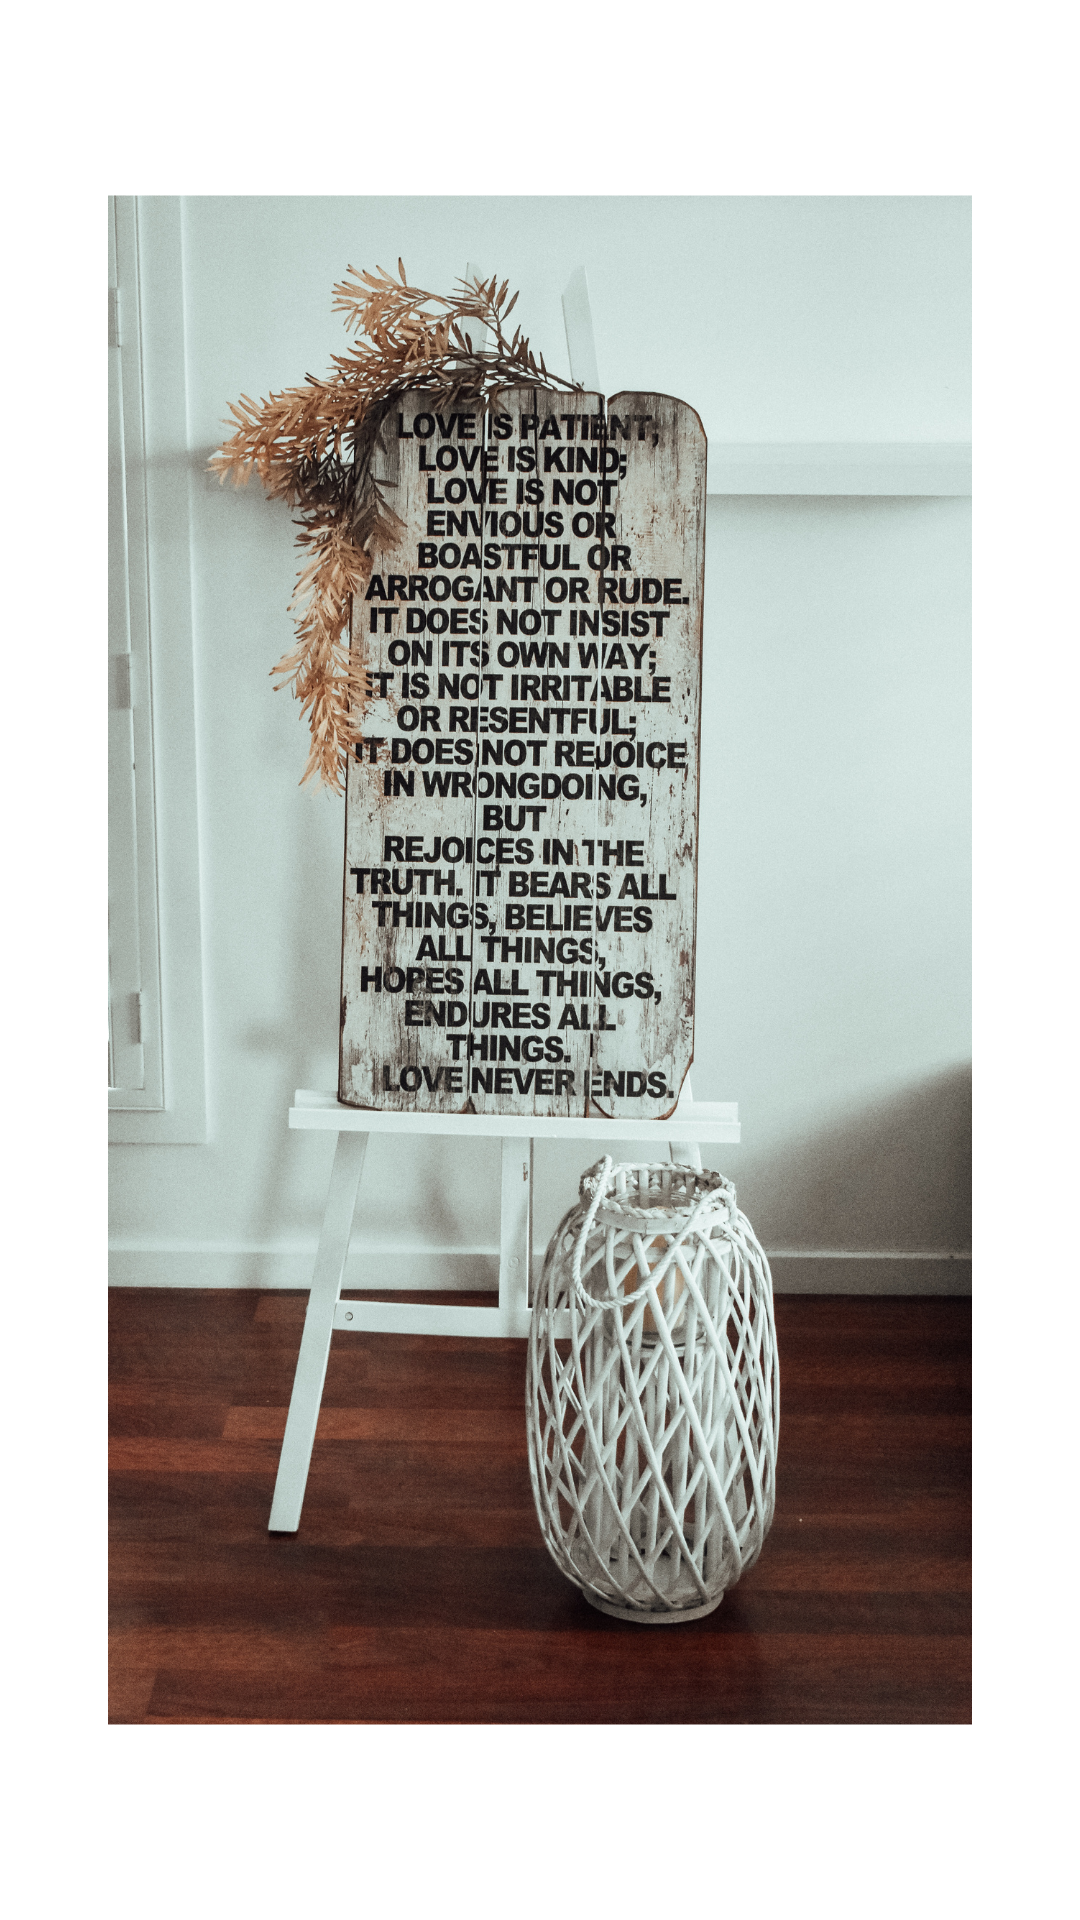 LOVE IS PATIENT;
LOVE IS KIND;
LOVE IS NOT
ENVIOUS OR
BOASTFUL OR
ARROGANT OR RUDE.
IT DOES NOT INSIST
ON ITS OWN WAY;
IT IS NOT IRRITABLE
OR RESENTFUL;
IT DOES NOT REJOICE
IN WRONGDOING,
BUT
REJOICES IN THE
TRUTH. IT BEARS ALL
THINGS, BELIEVES
ALL THINGS,
HOPES ALL THINGS,
ENDURES ALL
THINGS.
LOVE NEVER ENDS.